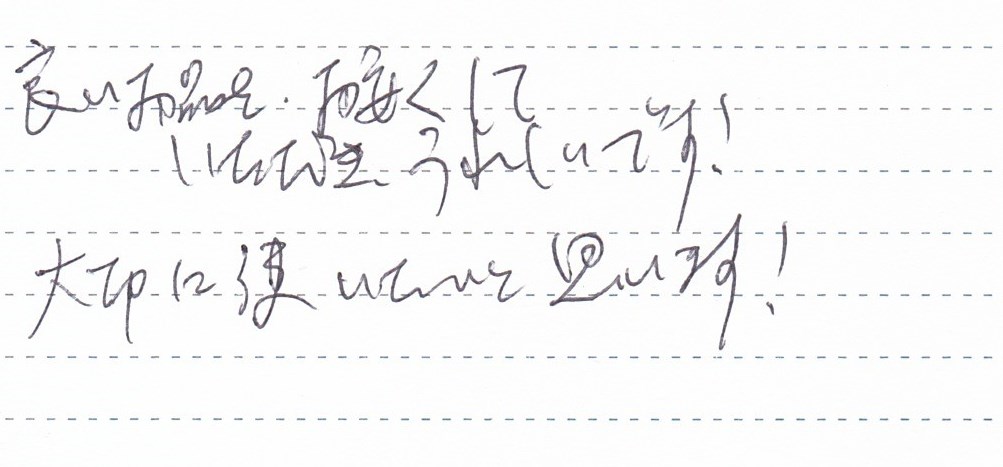 良いお品を、お安くして
いただき、うれしいです!
大切に使いたいと思います!